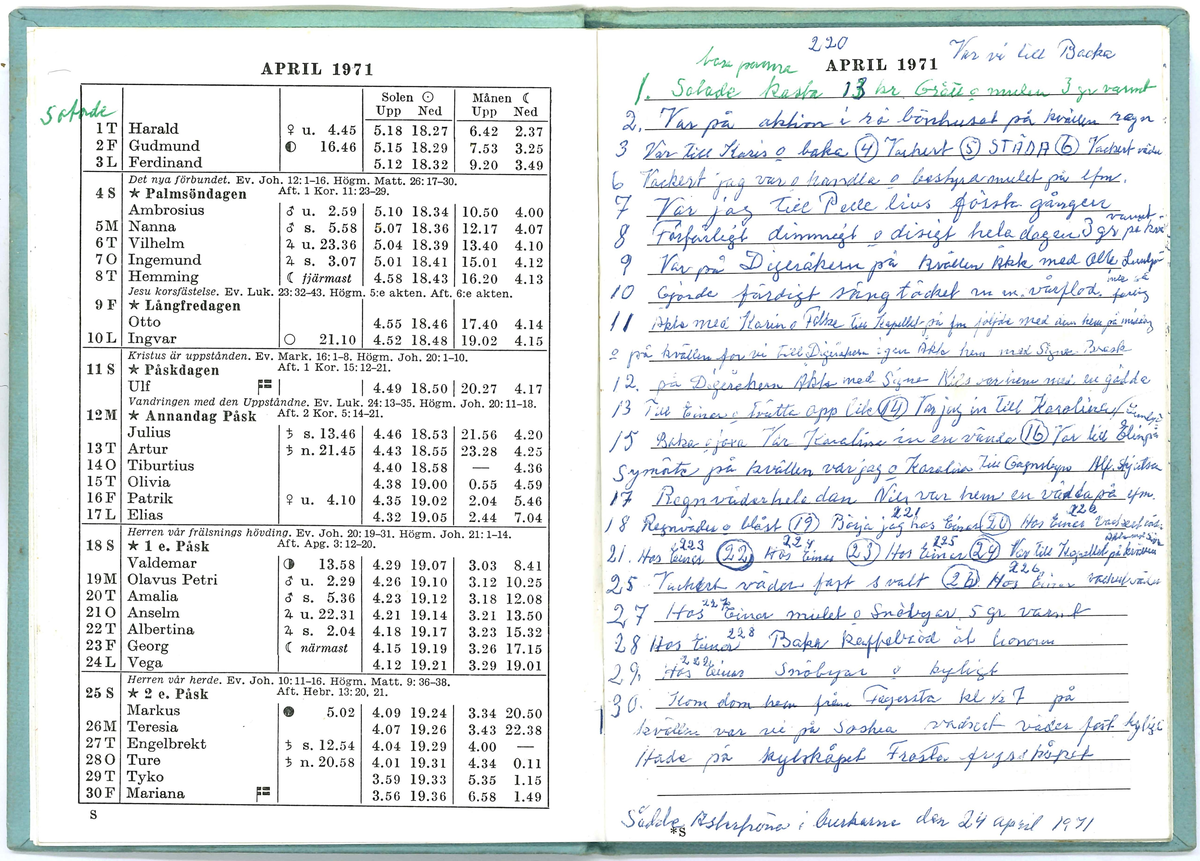 APRIL 1971
Sålade
Solen ☉ Månen ☾
Upp Ned Upp Ned
1 T Harald ♀ u. 4.45 5.18 18.27 6.42 2.37
2 F Gudmund ◐ 16.46 5.15 18.29 7.53 3.25
3 L Ferdinand 5.12 18.32 9.20 3.49
Det nya förbundet. Ev. Joh. 12: 1–16. Högm. Matt. 26: 17–30.
4 S ★ Palmsöndagen Aft. 1 Kor. 11: 23–29.
Ambrosius ♂ u. 2.59 5.10 18.34 10.50 4.00
5 M Nanna ♂ s. 5.58 5.07 18.36 12.17 4.07
6 T Vilhelm ♃ u. 23.36 5.04 18.39 13.40 4.10
7 O Ingemund ♃ s. 3.07 5.01 18.41 15.01 4.12
8 T Hemming ☾ fjärmast 4.58 18.43 16.20 4.13
Jesu korsfästelse. Ev. Luk. 23: 32–43. Högm. 5:e akten. Aft. 6:e akten.
9 F ★ Långfredagen
Otto 4.55 18.46 17.40 4.14
10 L Ingvar ○ 21.10 4.52 18.48 19.02 4.15
Kristus är uppstånden. Ev. Mark. 16: 1–8. Högm. Joh. 20: 1–10.
11 S ★ Påskdagen Aft. 1 Kor. 15: 12–21.
Ulf 4.49 18.50 20.27 4.17
Vandringen med den Uppståndne. Ev. Luk. 24: 13–35. Högm. Joh. 20: 11–18.
12 M ★ Annandag Påsk Aft. 2 Kor. 5: 14–21.
Julius ♄ s. 13.46 4.46 18.53 21.56 4.20
13 T Artur ♄ n. 21.45 4.43 18.55 23.28 4.25
14 O Tiburtius 4.40 18.58 — 4.36
15 T Olivia 4.38 19.00 0.55 4.59
16 F Patrik ♀ u. 4.10 4.35 19.02 2.04 5.46
17 L Elias 4.32 19.05 2.44 7.04
Herren vår frälsnings hövding. Ev. Joh. 20: 19–31. Högm. Joh. 21: 1–14.
18 S ★ 1 e. Påsk Aft. Apg. 3: 12–20.
Valdemar ◑ 13.58 4.29 19.07 3.03 8.41
19 M Olavus Petri ♂ u. 2.29 4.26 19.10 3.12 10.25
20 T Amalia ♂ s. 5.36 4.23 19.12 3.18 12.08
21 O Anselm ♃ u. 22.31 4.21 19.14 3.21 13.50
22 T Albertina ♃ s. 2.04 4.18 19.17 3.23 15.32
23 F Georg ☾ närmast 4.15 19.19 3.26 17.15
24 L Vega 4.12 19.21 3.29 19.01
Herren vår herde. Ev. Joh. 10: 11–16. Högm. Matt. 9: 36–38.
25 S ★ 2 e. Påsk Aft. Hebr. 13: 20, 21.
Markus ● 5.02 4.09 19.24 3.34 20.50
26 M Teresia 4.07 19.26 3.43 22.38
27 T Engelbrekt ♄ s. 12.54 4.04 19.29 4.00 —
28 O Ture ♄ n. 20.58 4.01 19.31 4.34 0.11
29 T Tyko 3.59 19.33 5.35 1.15
30 F Mariana 3.56 19.36 6.58 1.49
S
220 Var vi till Backa
APRIL 1971
1. Sålade kasta 13 kr. Grått o mulen 3 gr varmt
2. Var på auktion i bönhuset på kvällen regn
3 Var till Karin o baka (4) Vackert (5) STÄDA (6) Vackert väder
6 Vackert jag var o handla o bestyra mulet på efm.
7 Var jag till Pelle första gången
8 Förfärligt dimmigt o disigt hela dagen 3 gr varmt på kvä
9 Var på Digeråkern på kvällen Åkte med Olle
10 Gjorde färdigt sängtäcket m m. vårflod.
11 Åkte med Karin o Folke till Kapellet på fm följde med dem hem på middag
o på kvällen for vi till Digeråkern igen Åkte hem med Signe Brask
12. på Digeråkern Åkte med Signe Nils var hem med en gädda
13 Till Einar o tvätta opp lite (14) Var jag in till Karolina
15 Baka o Var Karolina in en vända (16) Var till Elin på
Symöte på kvällen var jag o Karolina till Gagnsbyn
17 Regnväder hela dan Nils var hem en vända på efm.
18 Regnväder o blåst (19) Börja jag hos Einar 221 (20) Hos Einar
21. Hos Einar 223 (22) Hos Einar 224 (23) Hos Einar 225 (24) Var till Kapellet på kvällen
25. Vackert väder fast svalt (26) Hos Einar 226 vackert väder
27 Hos Einar 227 mulet o Snöbyar 5 gr varmt
28 Hos Einar 228 Baka kaffebröd åt honom
29. Hos Einar 229 Snöbyar o kyligt
30. Kom dom hem från Fagersta kl ½ 7 på
kvällen var vi på vackert väder fast kyligt
Hade på kylskåpet Frosta frysskåpet
Sådde i burkarna den 24 april 1971
*S